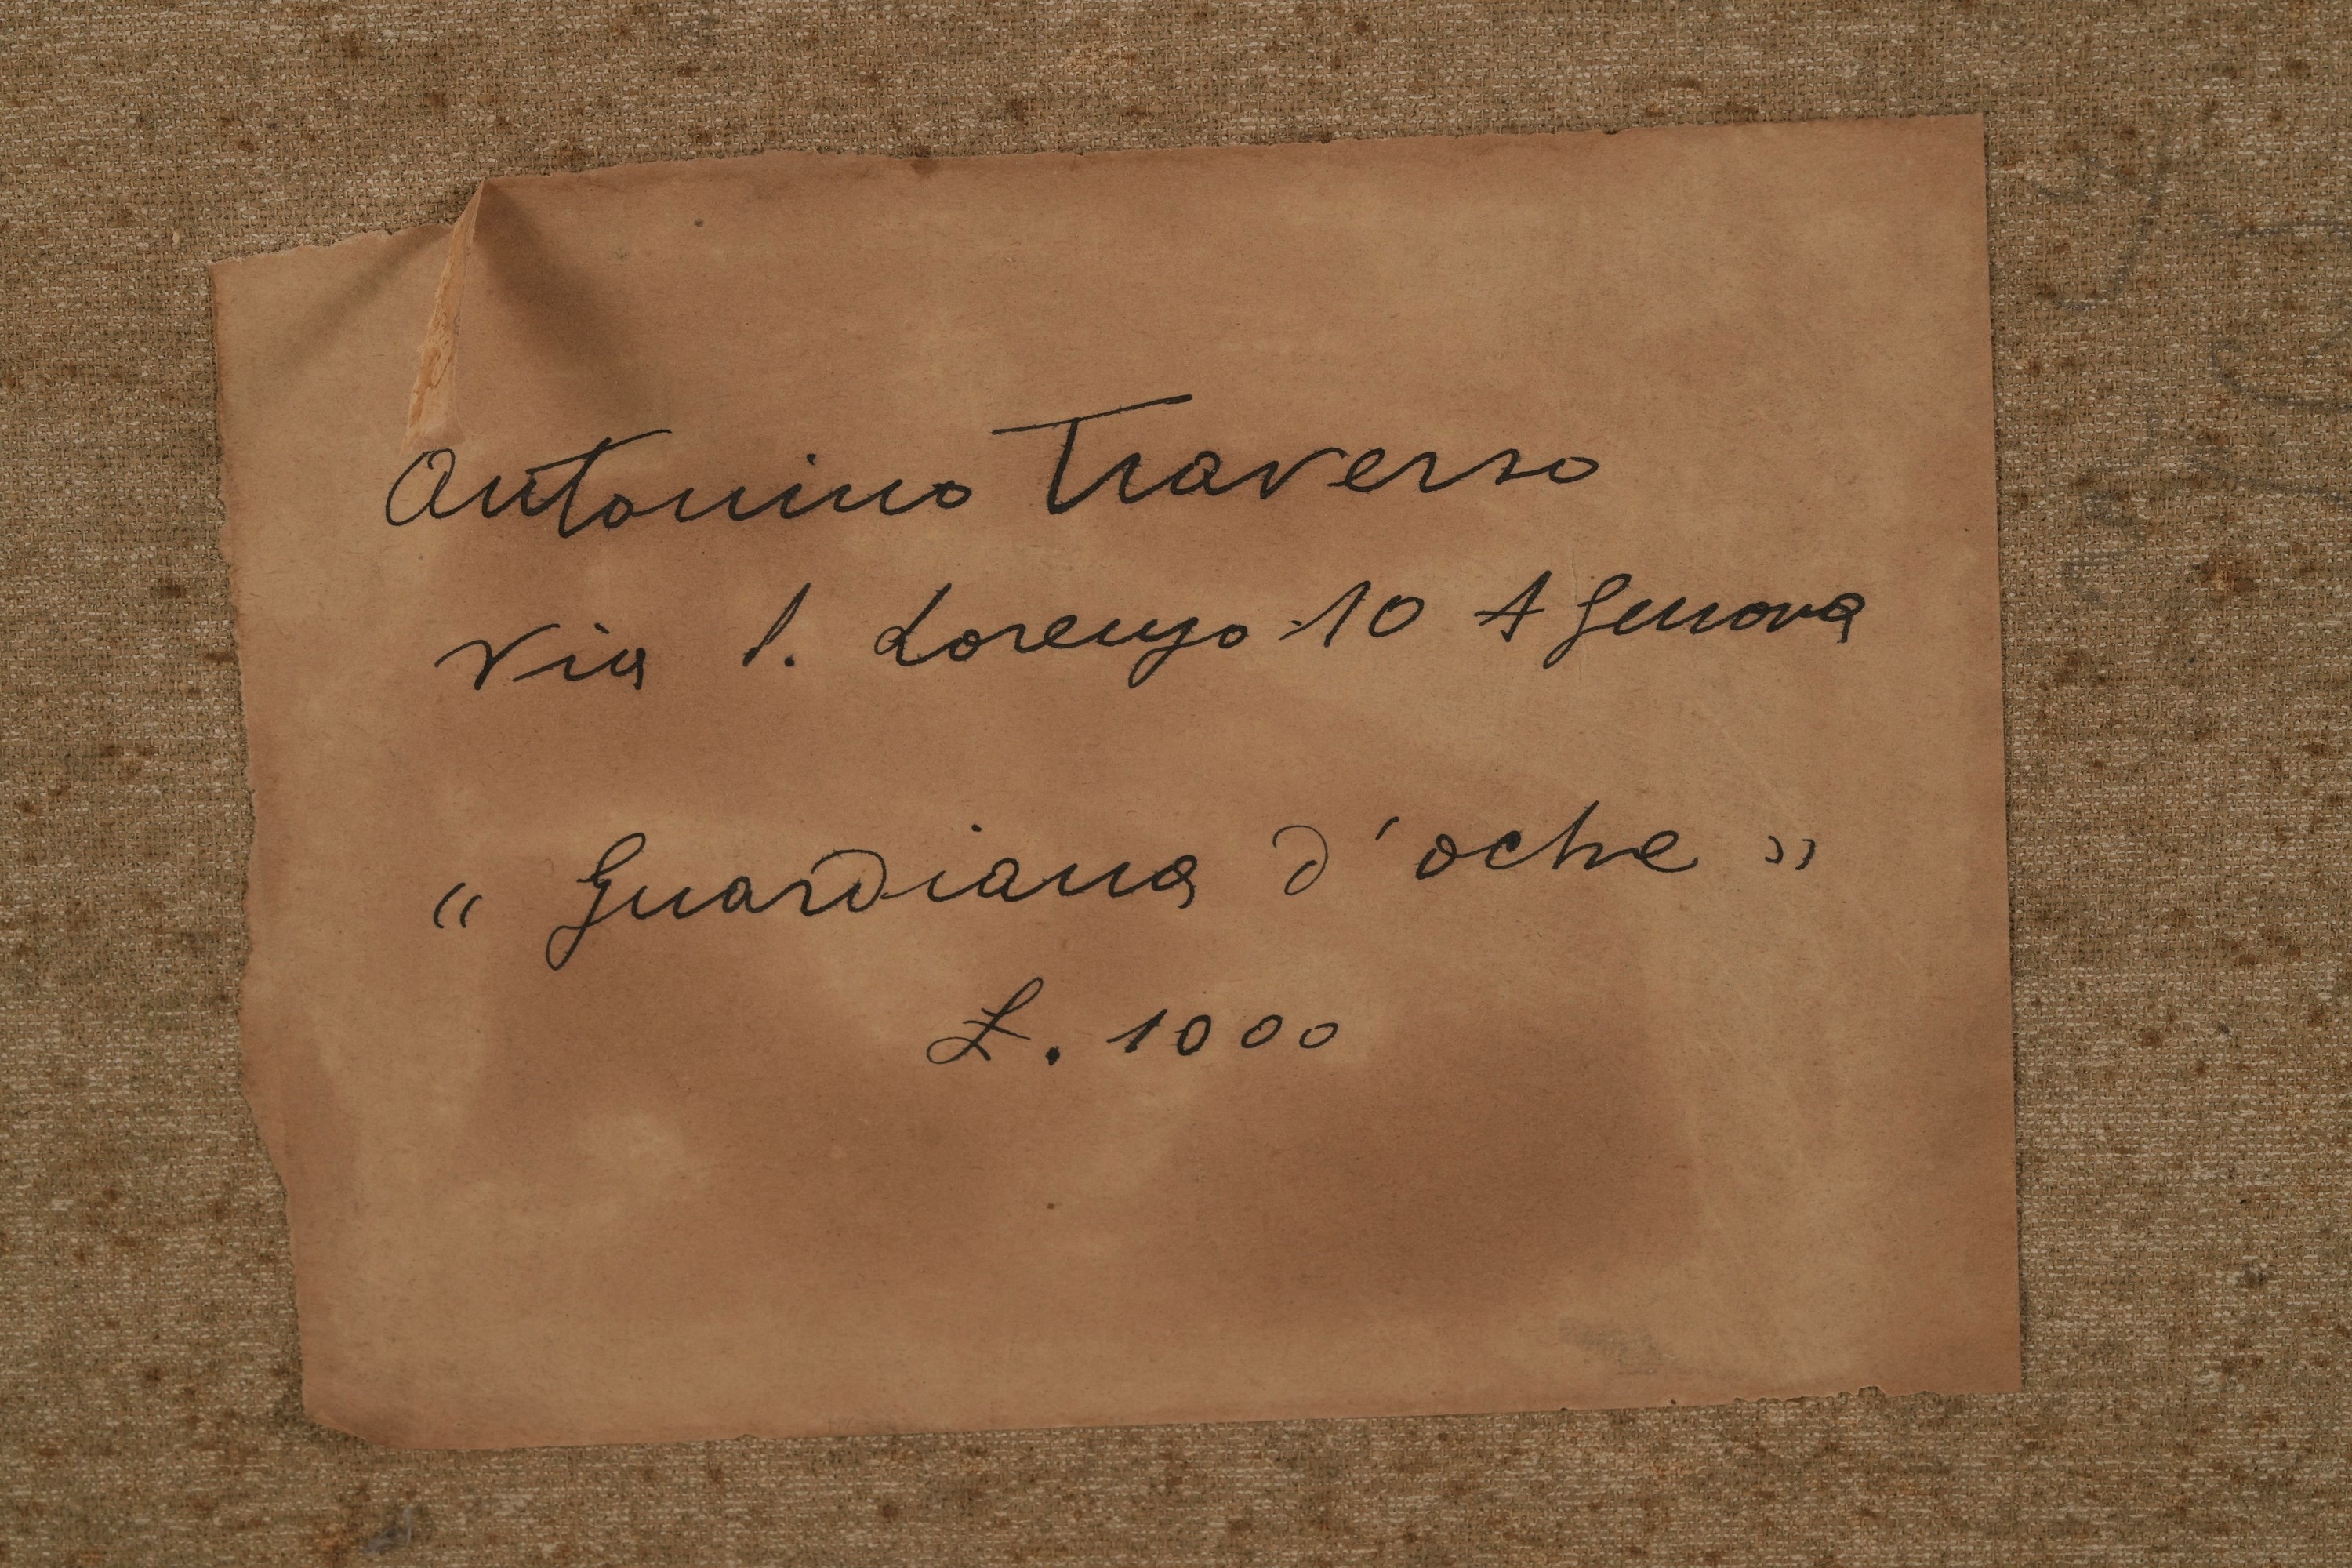 Antonino Traverso
Via S. Lorenzo 10 A Genova
“ Guardiana d'oche ”
£. 1000